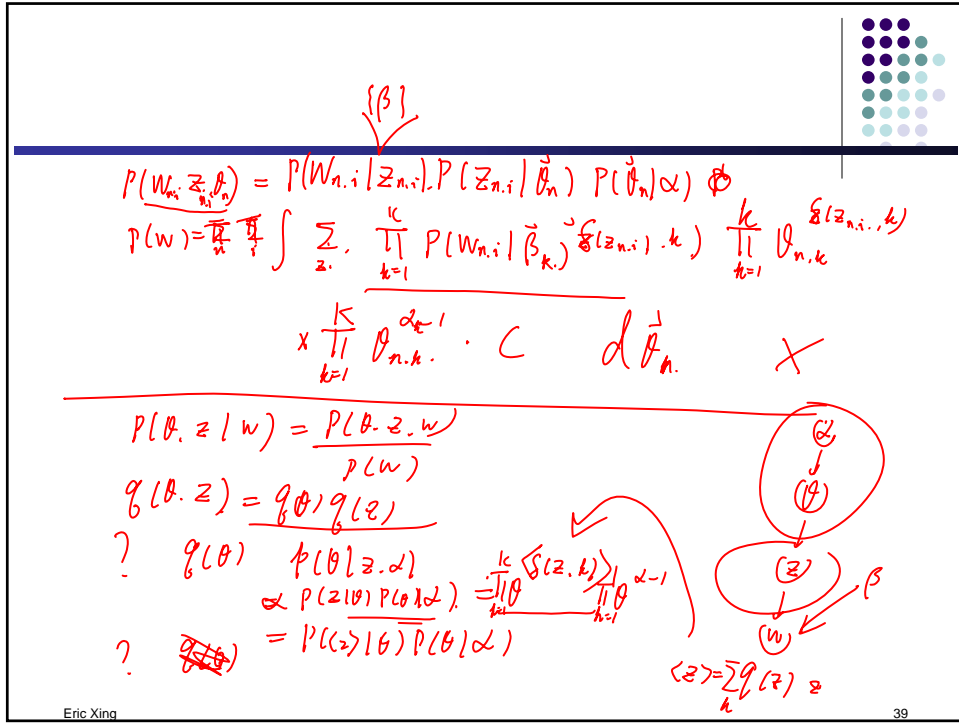 {β}
P(W_{n,i} Z_{n,i} θ_n) = P(W_{n.i} | Z_{n.i}). P(Z_{n.i} | θ⃗_n) P(θ⃗_n | α)
P(w) = ∏_n ∏_i ∫ Σ_z. ∏_{k=1}^{K} P(W_{n.i} | β⃗_k.)^{δ(z_{n.i}, k)} ∏_{k=1}^{k} θ_{n,k}^{δ(z_{n.i}, k)}
x ∏_{k=1}^{K} θ_{n.k.}^{α_k-1} . C d θ⃗_n. X
P(θ. z | w) = P(θ. z. w) / P(w)
q(θ. z) = q(θ) q(z)
? q(θ) P(θ | z. α)
∝ P(z | θ) P(θ | α). = ∏_{k=1}^{K} θ^{⟨δ(z, k)⟩} ∏_{k=1} θ^{α-1}
? = P(⟨z⟩ | θ) P(θ | α)
(α)
(θ)
(z)
β
(w)
⟨z⟩ = Σ_k q(z) z
Eric Xing
39